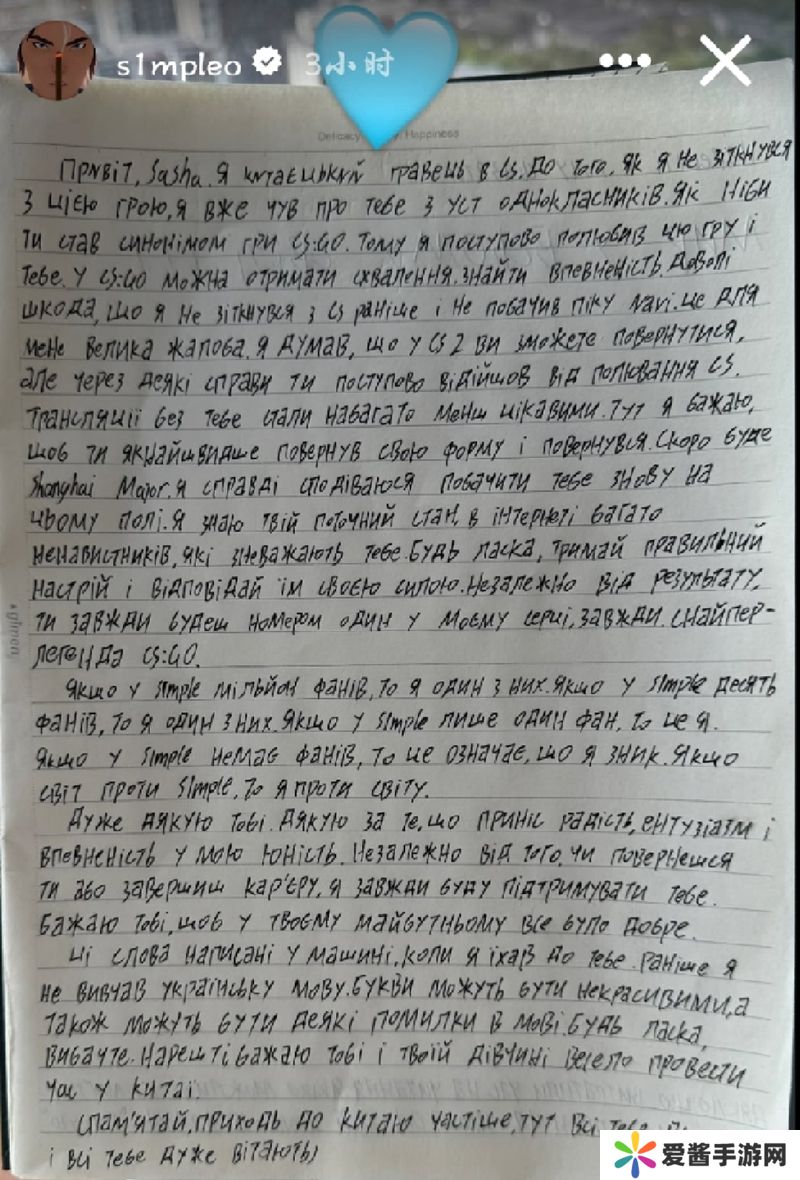 s1mpleo 3小时
Привіт, Sasha. Я китаєцький гравець в CS. До того, як я не зіткнувся
з цією грою, я вже чув про тебе з уст однокласників. Як ніби
ти став синонімом гри CS:GO. Тому я поступово полюбив цю гру і
тебе. У CS:GO можна отримати схвалення. Знайти впевненість. Доволі
шкода, що я не зіткнувся з CS раніше і не побачив піку Navi. Це для
мене велика жалоба. Я думав, що у CS 2 ви зможете повернутися,
але через деякі справи ти поступово відійшов від полювання CS.
Трансляції без тебе стали набагато менш цікавими. Тут я бажаю,
щоб ти якнайшвидше повернув свою форму і повернувся. Скоро буде
Shanghai Major. Я справді сподіваюся побачити тебе знову на
цьому полі. Я знаю твій поточний стан, в інтернеті багато
ненависників, які зневажають тебе. Будь ласка, тримай правильний
настрій і відповідай їм своєю силою. Незалежно від результату,
ти завжди будеш номером один у моєму серці, завжди. Снайпер-
легенда CS:GO.
Якщо у s1mple мільйон фанів, то я один з них. Якщо у s1mple десять
фанів, то я один з них. Якщо у s1mple лише один фан, то це я.
Якщо у s1mple немає фанів, то це означає, що я зник. Якщо
світ проти s1mple, то я проти світу.
Дуже дякую тобі. Дякую за те, що приніс радість, ентузіазм і
впевненість у мою юність. Незалежно від того, чи повернешся
ти або завершиш кар'єру, я завжди буду підтримувати тебе.
Бажаю тобі, щоб у твоєму майбутньому все було добре.
Ці слова написані у машині, коли я їхав до тебе. Раніше я
не вивчав українську мову. Букви можуть бути некрасивими, а
також можуть бути деякі помилки в мові. Будь ласка,
вибачте. Нарешті бажаю тобі і твоїй дівчині весело провести
час у Китаї.
Спам'ятай, приходь до Китаю частіше, тут всі тебе
і всі тебе дуже вітають)
爱酱手游网